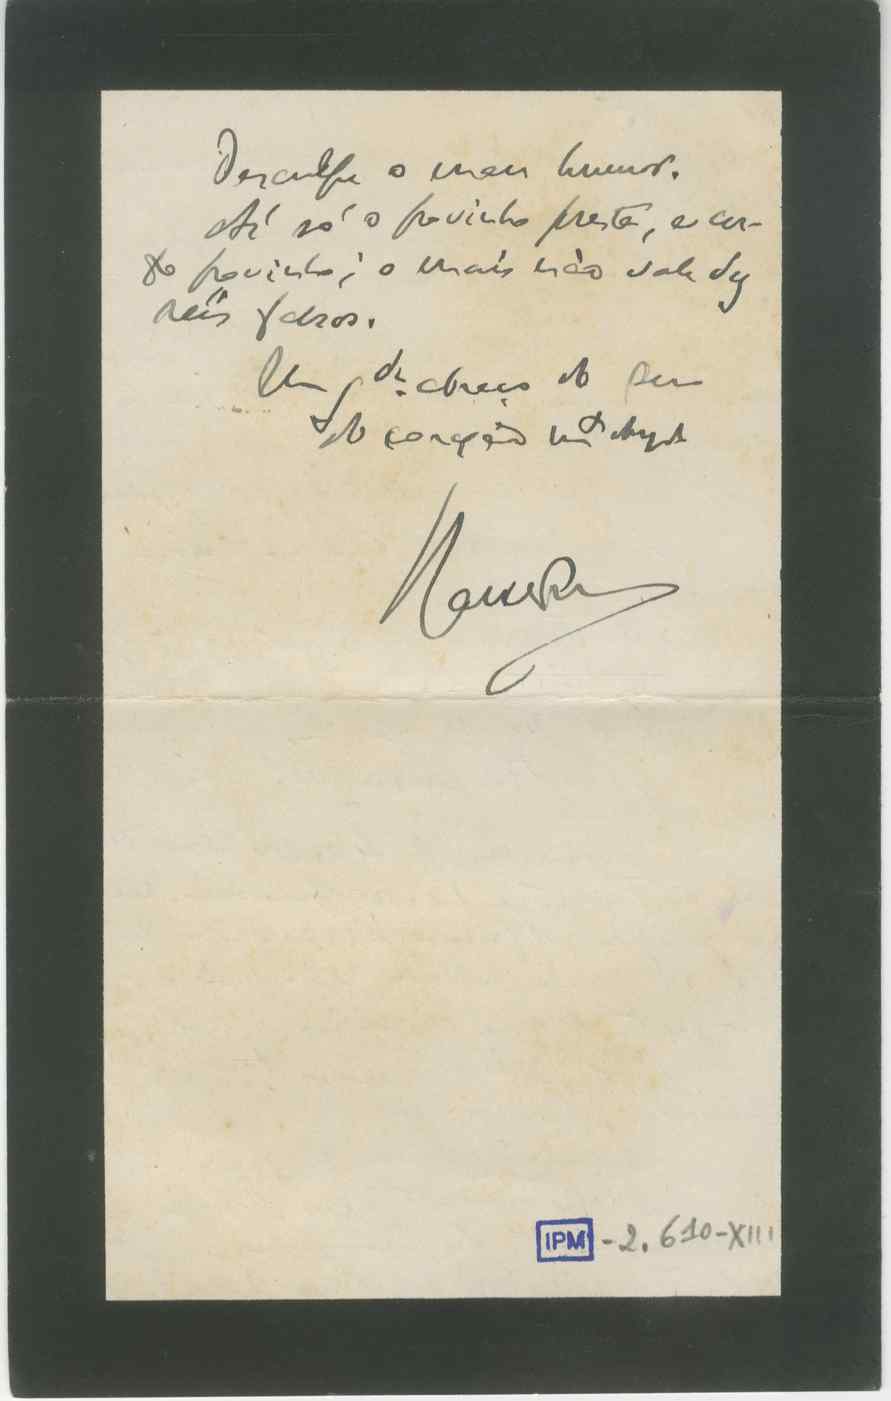 Desculpe o meu humor.
Aí só o povinho presta, e cer-
to povinho; o mais não vale dez
réis falsos.
Um gde. abraço do seu
do coração mto obrgdo
IPM -2.610-XIII